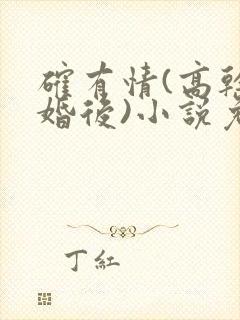 確有情(高幹
婚後)小說
丁紅